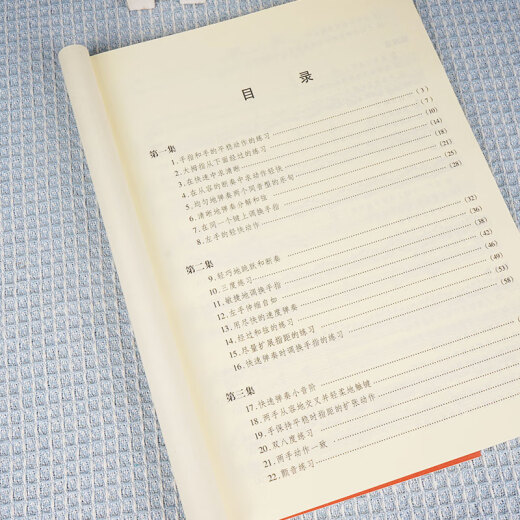 目 录
第一集
1. 手指和手的平稳动作的练习 (3)
2. 大拇指从下面经过的练习 (7)
3. 在快速中求清晰 (10)
4. 在从容的断奏中求动作轻快 (14)
5. 均匀地弹奏两个同音型的乐句 (18)
6. 清晰地弹奏分解和弦 (21)
7. 在同一个键上调换手指 (25)
8. 左手的轻快动作 (28)
第二集
9. 轻巧地跳跃和断奏 (32)
10. 三度练习 (36)
11. 敏捷地调换手指 (38)
12. 左手伸缩自如 (42)
13. 用尽快的速度弹奏 (46)
14. 经过和弦的练习 (49)
15. 尽量扩展指距的练习 (53)
16. 快速弹奏时调换手指的练习 (58)
第三集
17. 快速弹奏小音阶
18. 两手从容地交叉并轻柔地触键
19. 手保持平稳时指距的扩张动作
20. 双八度练习
21. 两手动作一致
22. 颤音练习